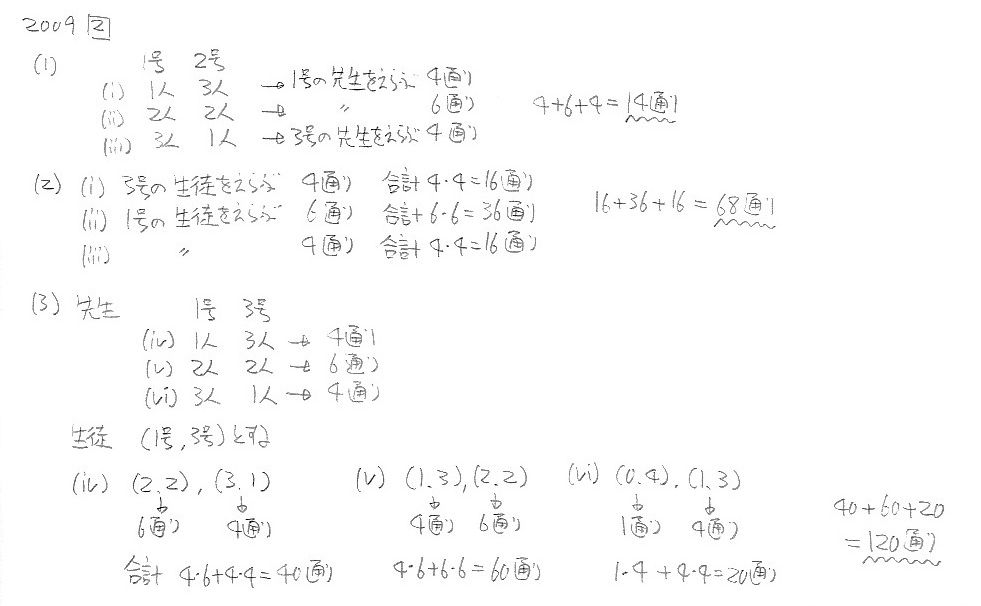 2009 2
(1) 1号 2号
(i) 1人 3人 → 1号の先生をえらぶ 4通り
(ii) 2人 2人 → 〃 6通り 4+6+4=14通り
(iii) 3人 1人 → 3号の先生をえらぶ 4通り
(2) (i) 3号の生徒をえらぶ 4通り 合計 4・4=16通り
(ii) 1号の生徒をえらぶ 6通り 合計 6・6=36通り 16+36+16=68通り
(iii) 〃 4通り 合計 4・4=16通り
(3) 先生 1号 3号
(iv) 1人 3人 → 4通り
(v) 2人 2人 → 6通り
(vi) 3人 1人 → 4通り
生徒 (1号,3号)とする
(iv) (2.2), (3.1) (v) (1.3), (2.2) (vi) (0.4), (1.3)
↓ ↓ ↓ ↓ ↓ ↓
6通り 4通り 4通り 6通り 1通り 4通り 40+60+20
合計 4・6+4・4=40通り 4・6+6・6=60通り 1・4+4・4=20通り =120通り